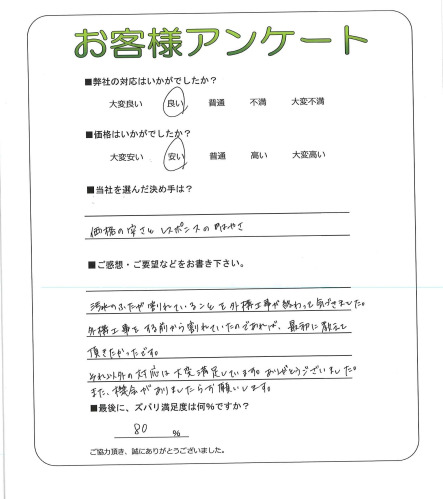 お客様アンケート
■弊社の対応はいかがでしたか？
大変良い 良い 普通 不満 大変不満
■価格はいかがでしたか？
大変安い 安い 普通 高い 大変高い
■当社を選んだ決め手は？
価格の安さと レスポンスのはやさ
■ご感想・ご要望などをお書き下さい。
汚水のふたが割れていることを外構工事が終わって気づきました。
外構工事をする前から割れていたのであれば、最初に教えて
頂きたかったです。
それ以外の対応は大変満足しています。ありがとうございました。
また、機会がありましたらお願いします。
■最後に、ズバリ満足度は何％ですか？
80 %
ご協力頂き、誠にありがとうございました。